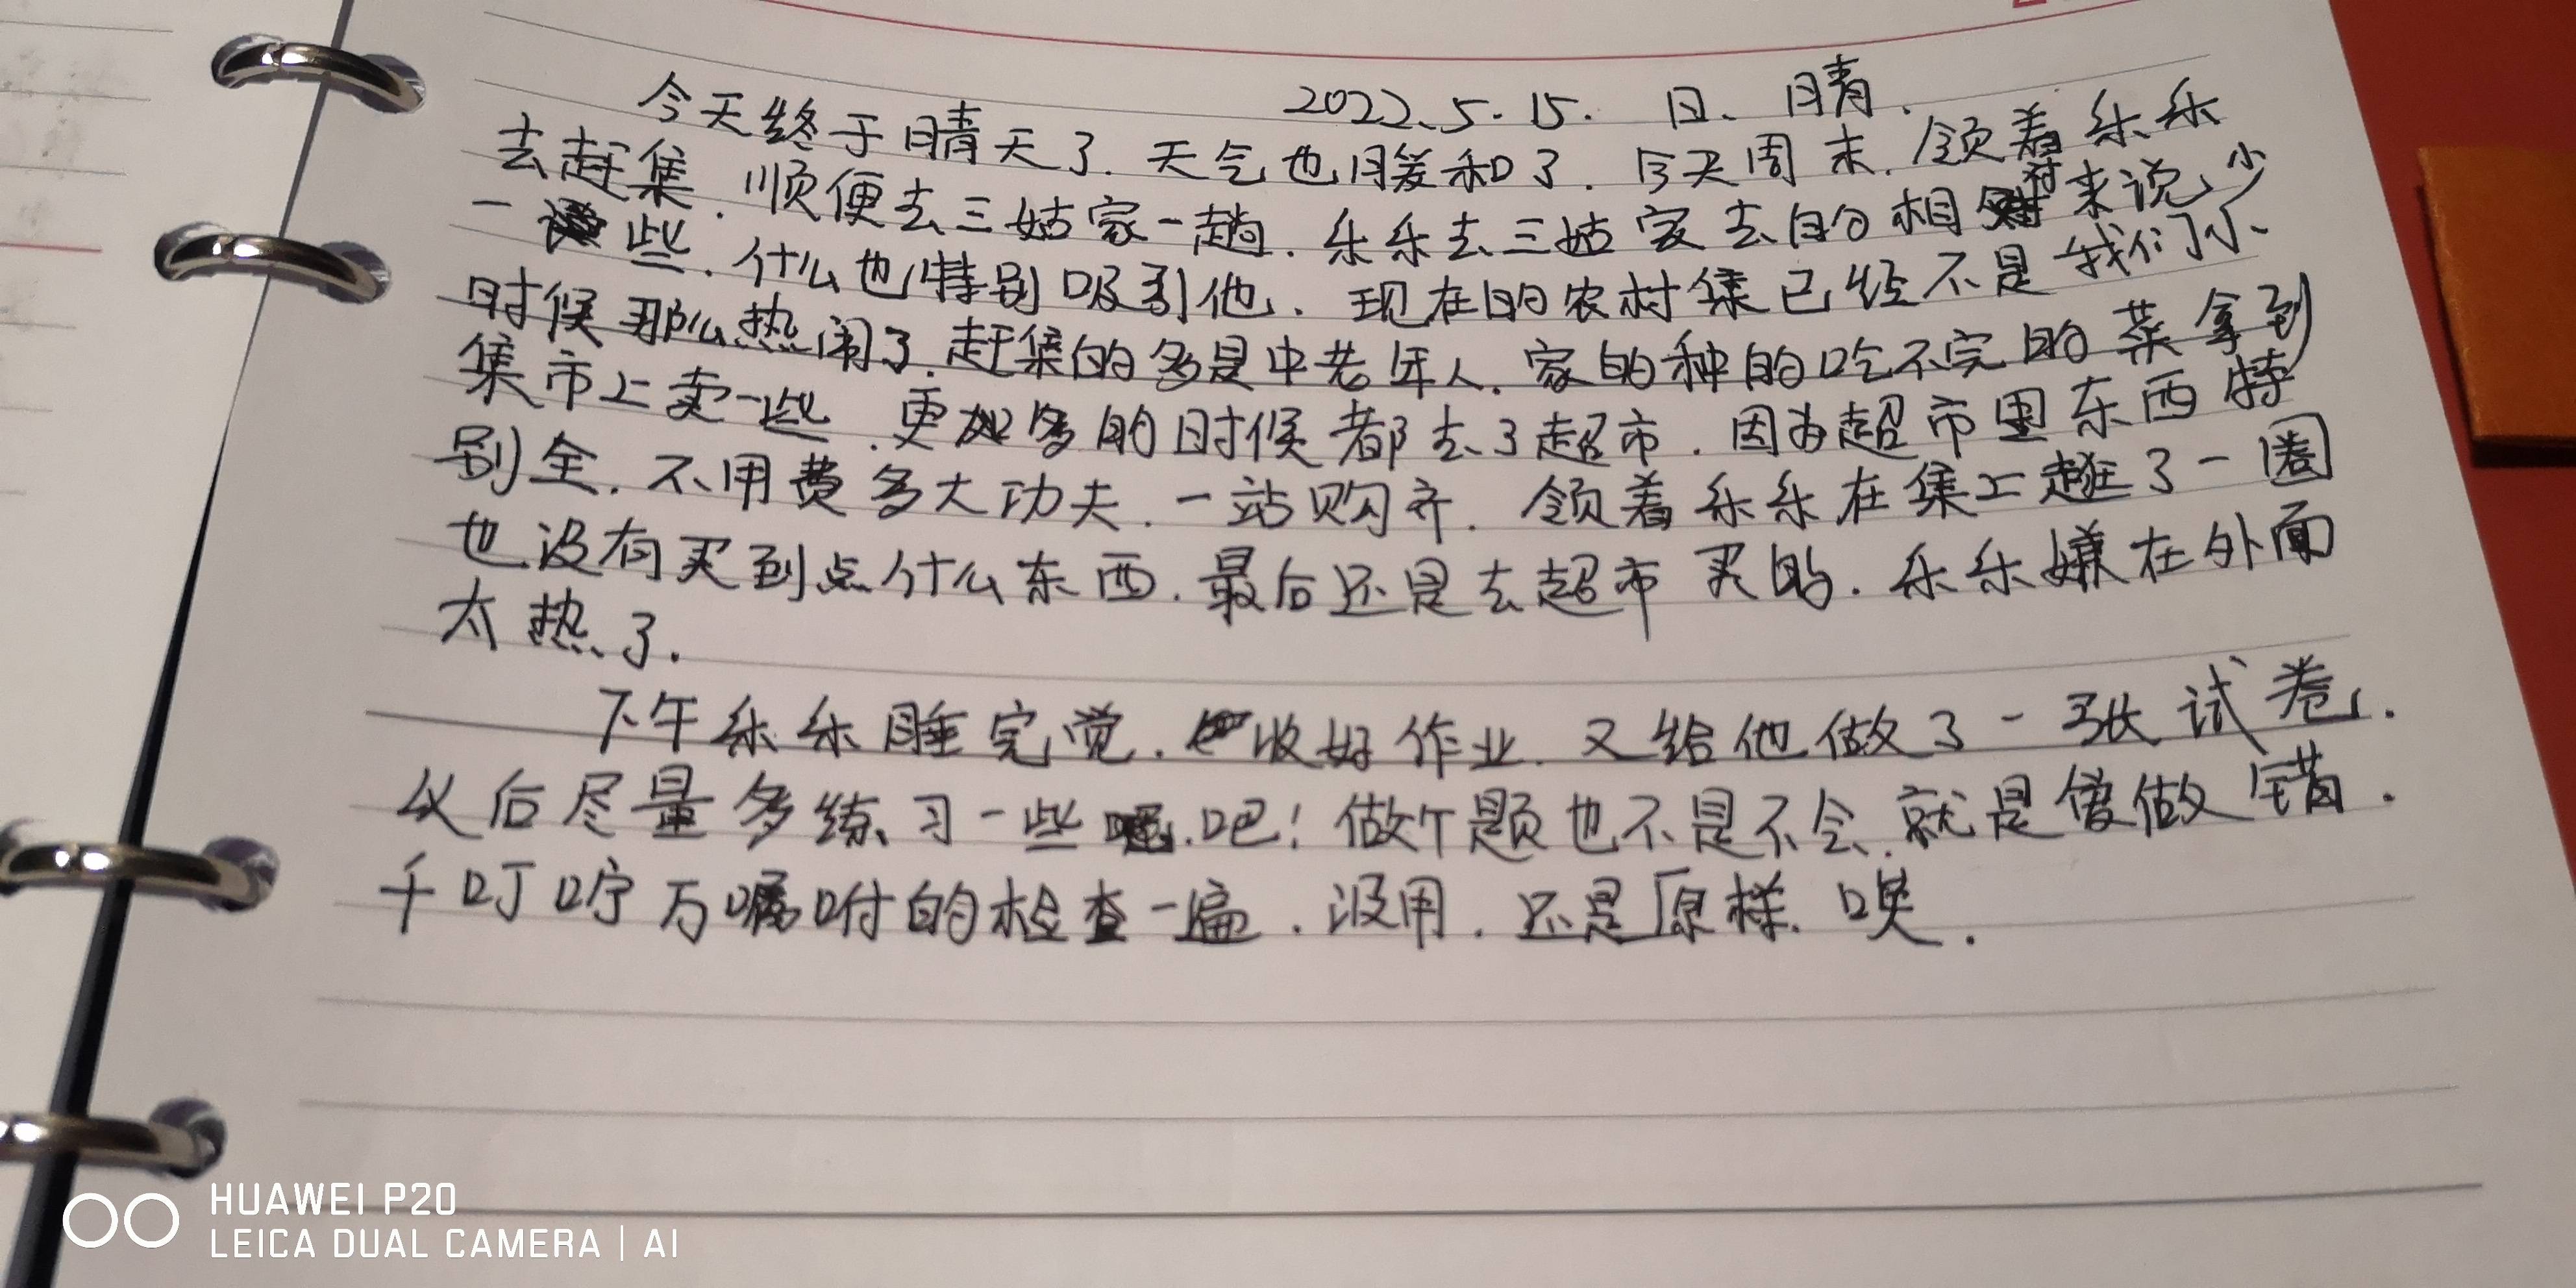 2022.5.15. 日、晴.
今天终于晴天了.天气也暖和了.今天周末.领着乐乐
去赶集.顺便去三姑家一趟.乐乐去三姑家去的相对来说少
一些.什么也特别吸引他.现在的农村集已经不是我们小
时候那么热闹了.赶集的多是中老年人.家的种的吃不完的菜拿到
集市上卖一些.更多的时候都去了超市.因为超市里东西特
别全.不用费多大功夫.一站购齐.领着乐乐在集上逛了一圈
也没有买到点什么东西.最后还是去超市买的.乐乐嫌在外面
太热了.
下午乐乐睡完觉.收好作业.又给他做了一张试卷.
以后尽量多练习一些吧!做个题也不是不会.就是会做错.
千叮咛万嘱咐的检查一遍.没用.还是原样.唉.
HUAWEI P20
LEICA DUAL CAMERA | AI